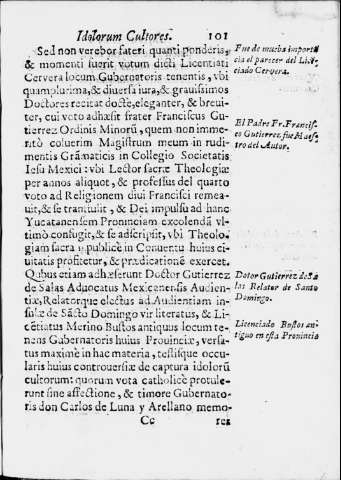 Idolorum Cultores. 101
Sed non verebor fateri quanti ponderis,
& momenti fuerit votum dicti Licentiati
Cervera locum Gubernatoris tenentis, vbi
quamplurima, & diversa iura, & gravissimos
Doctores recitat doctè, eleganter, & brevi-
ter, cui voto adhæsit frater Franciscus Gu-
tierrez Ordinis Minorũ, quem non imme-
ritò coluerim Magistrum meum in rudi-
mentis Grãmaticis in Collegio Societatis
Iesu Mexici: vbi Lector sacræ Theologiæ
per annos aliquot, & professus del quarto
voto ad Religionem diui Francisci remea-
uit, & se transtulit, & Dei impulsu ad hanc
Yucatanensem Prouinciam excolendã vl-
timò confugit, & se adscripsit, vbi Theolo-
giam sacrã publicè in Conuentu huius ci-
uitatis profitetur, & prædicationẽ exercet.
Quibus etiam adhæserunt Doctor Gutierrez
de Salas Advocatus Mexicensis Audien-
tiæ, Relatorque electus ad Audientiam in-
sulæ de Sãcto Domingo vir literatus, & Li-
cẽtiatus Merino Bustos antiquus locum te-
nens Gubernatoris huius Prouinciæ, versa-
tus maximè in hac materia, testisque occu-
laris huius controuersiæ de captura idolorũ
cultorum: quorum vota catholicè protule-
runt sine affectione, & timore Gubernato-
ris don Carlos de Luna y Arellano memo-
Cc
Fue de mucha importã
cia el parecer del Licẽ
ciado Cervera.
El Padre Fr. Francis-
co Gutierrez, fue Maes-
tro del Autor.
Dotor Gutierrez de Sa
las Relator de Santo
Domingo.
Licenciado Bustos an-
tiguo en esta Prouincia